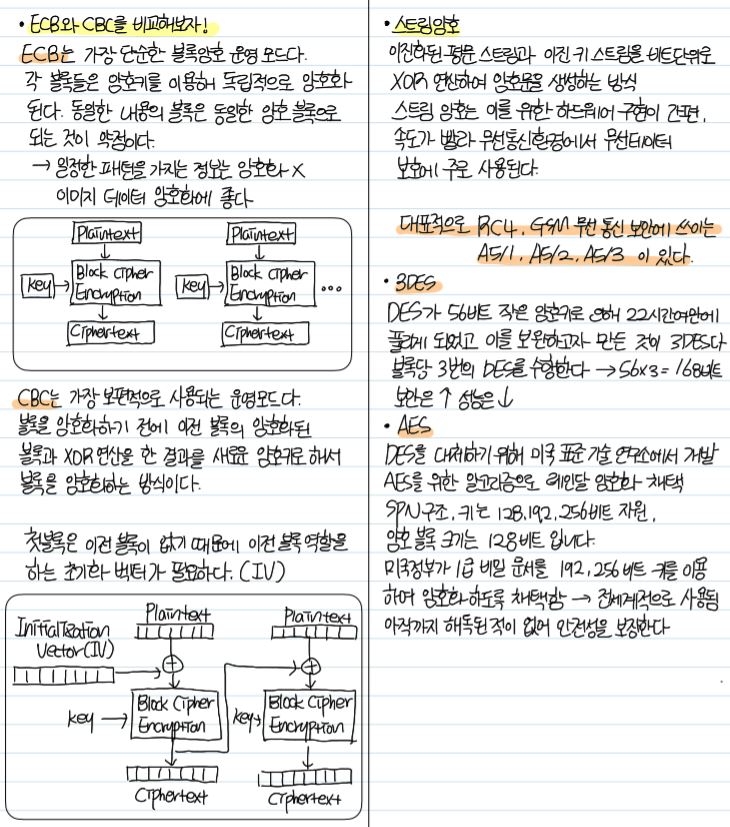 • ECB와 CBC를 비교해보자!
ECB는 가장 단순한 블록암호 운영 모드다.
각 블록들은 암호키를 이용해 독립적으로 암호화
된다. 동일한 내용의 블록은 동일한 암호 블록으로
되는 것이 약점이다.
→ 일정한 패턴을 가지는 정보는 암호화 X
이미지 데이터 암호화에 좋다
Plaintext
Plaintext
key
Block Cipher
Encryption
key
Block Cipher
Encryption
...
Ciphertext
Ciphertext
CBC는 가장 보편적으로 사용되는 운영모드다.
블록을 암호화하기 전에 이전 블록의 암호화된
블록과 XOR연산을 한 결과를 새로운 암호키로 해서
블록을 암호화하는 방식이다.
첫블록은 이전 블록이 없기 때문에 이전 블록 역할을
하는 초기화 벡터가 필요하다. (IV)
Plaintext
Plaintext
Initialization
Vector(IV)
key
Block Cipher
Encryption
key
Block Cipher
Encryption
Ciphertext
Ciphertext
• 스트림암호
이진화된 평문 스트림과 이진 키 스트림을 비트단위로
XOR 연산하여 암호문을 생성하는 방식
스트림 암호는 이를 위한 하드웨어 구현이 간편,
속도가 빨라 무선통신환경에서 무선데이터
보호에 주로 사용된다.
대표적으로 RC4, GSM 무선 통신 보안에 쓰이는
A5/1, A5/2, A5/3 이 있다.
• 3DES
DES가 56비트 작은 암호키로 인해 22시간여만에
풀리게 되었고 이를 보완하고자 만든 것이 3DES다
블록당 3번의 DES를 수행한다 → 56×3=168비트
보안은 ↑ 성능은 ↓
• AES
DES를 대체하기 위해 미국 표준 기술 연구소에서 개발
AES를 위한 알고리즘으로 레인달 암호화 채택
SPN구조, 키는 128,192,256비트 지원,
암호 블록 크기는 128비트 입니다.
미국정부가 1급 비밀 문서를 192,256비트 키를 이용
하여 암호화 하도록 채택함 → 전세계적으로 사용됨
아직까지 해독된 적이 없어 안전성을 보장한다